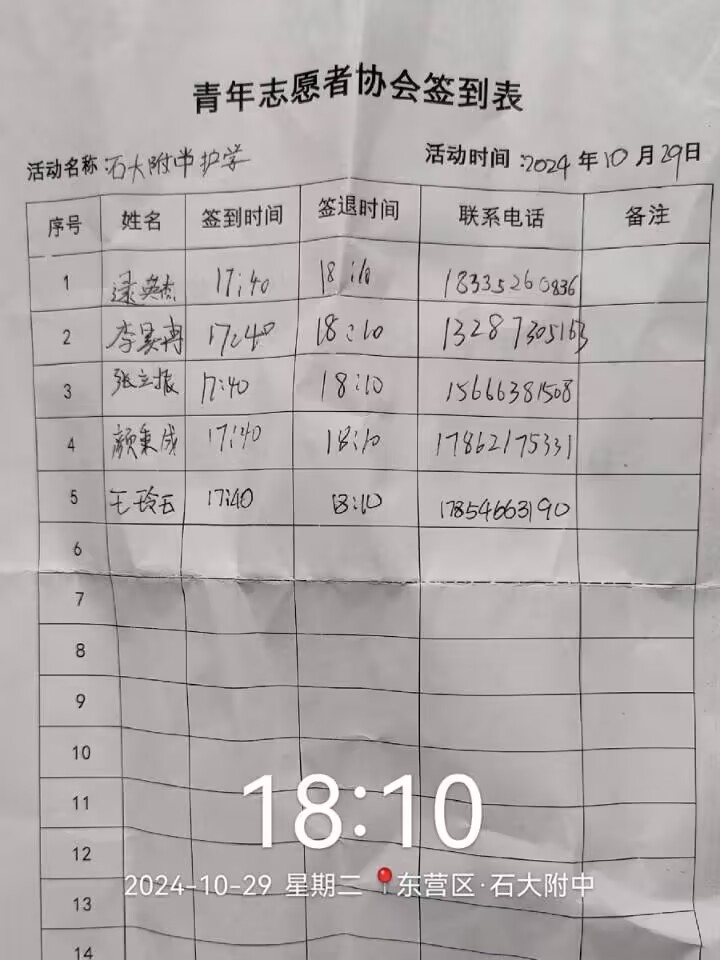 青年志愿者协会签到表
活动名称:石大附中护学 活动时间:2024年10月29日
序号 姓名 签到时间 签退时间 联系电话 备注
1 英杰 17:40 18:10 18335260836
2 李昊冉 17:40 18:10 13287305163
3 张立振 17:40 18:10 15666381508
4 颜秉成 17:40 18:10 17862175331
5 王玲玉 17:40 18:10 17854663190
6
7
8
9
10
11
12
13
14
18:10
2024-10-29 星期二 东营区·石大附中